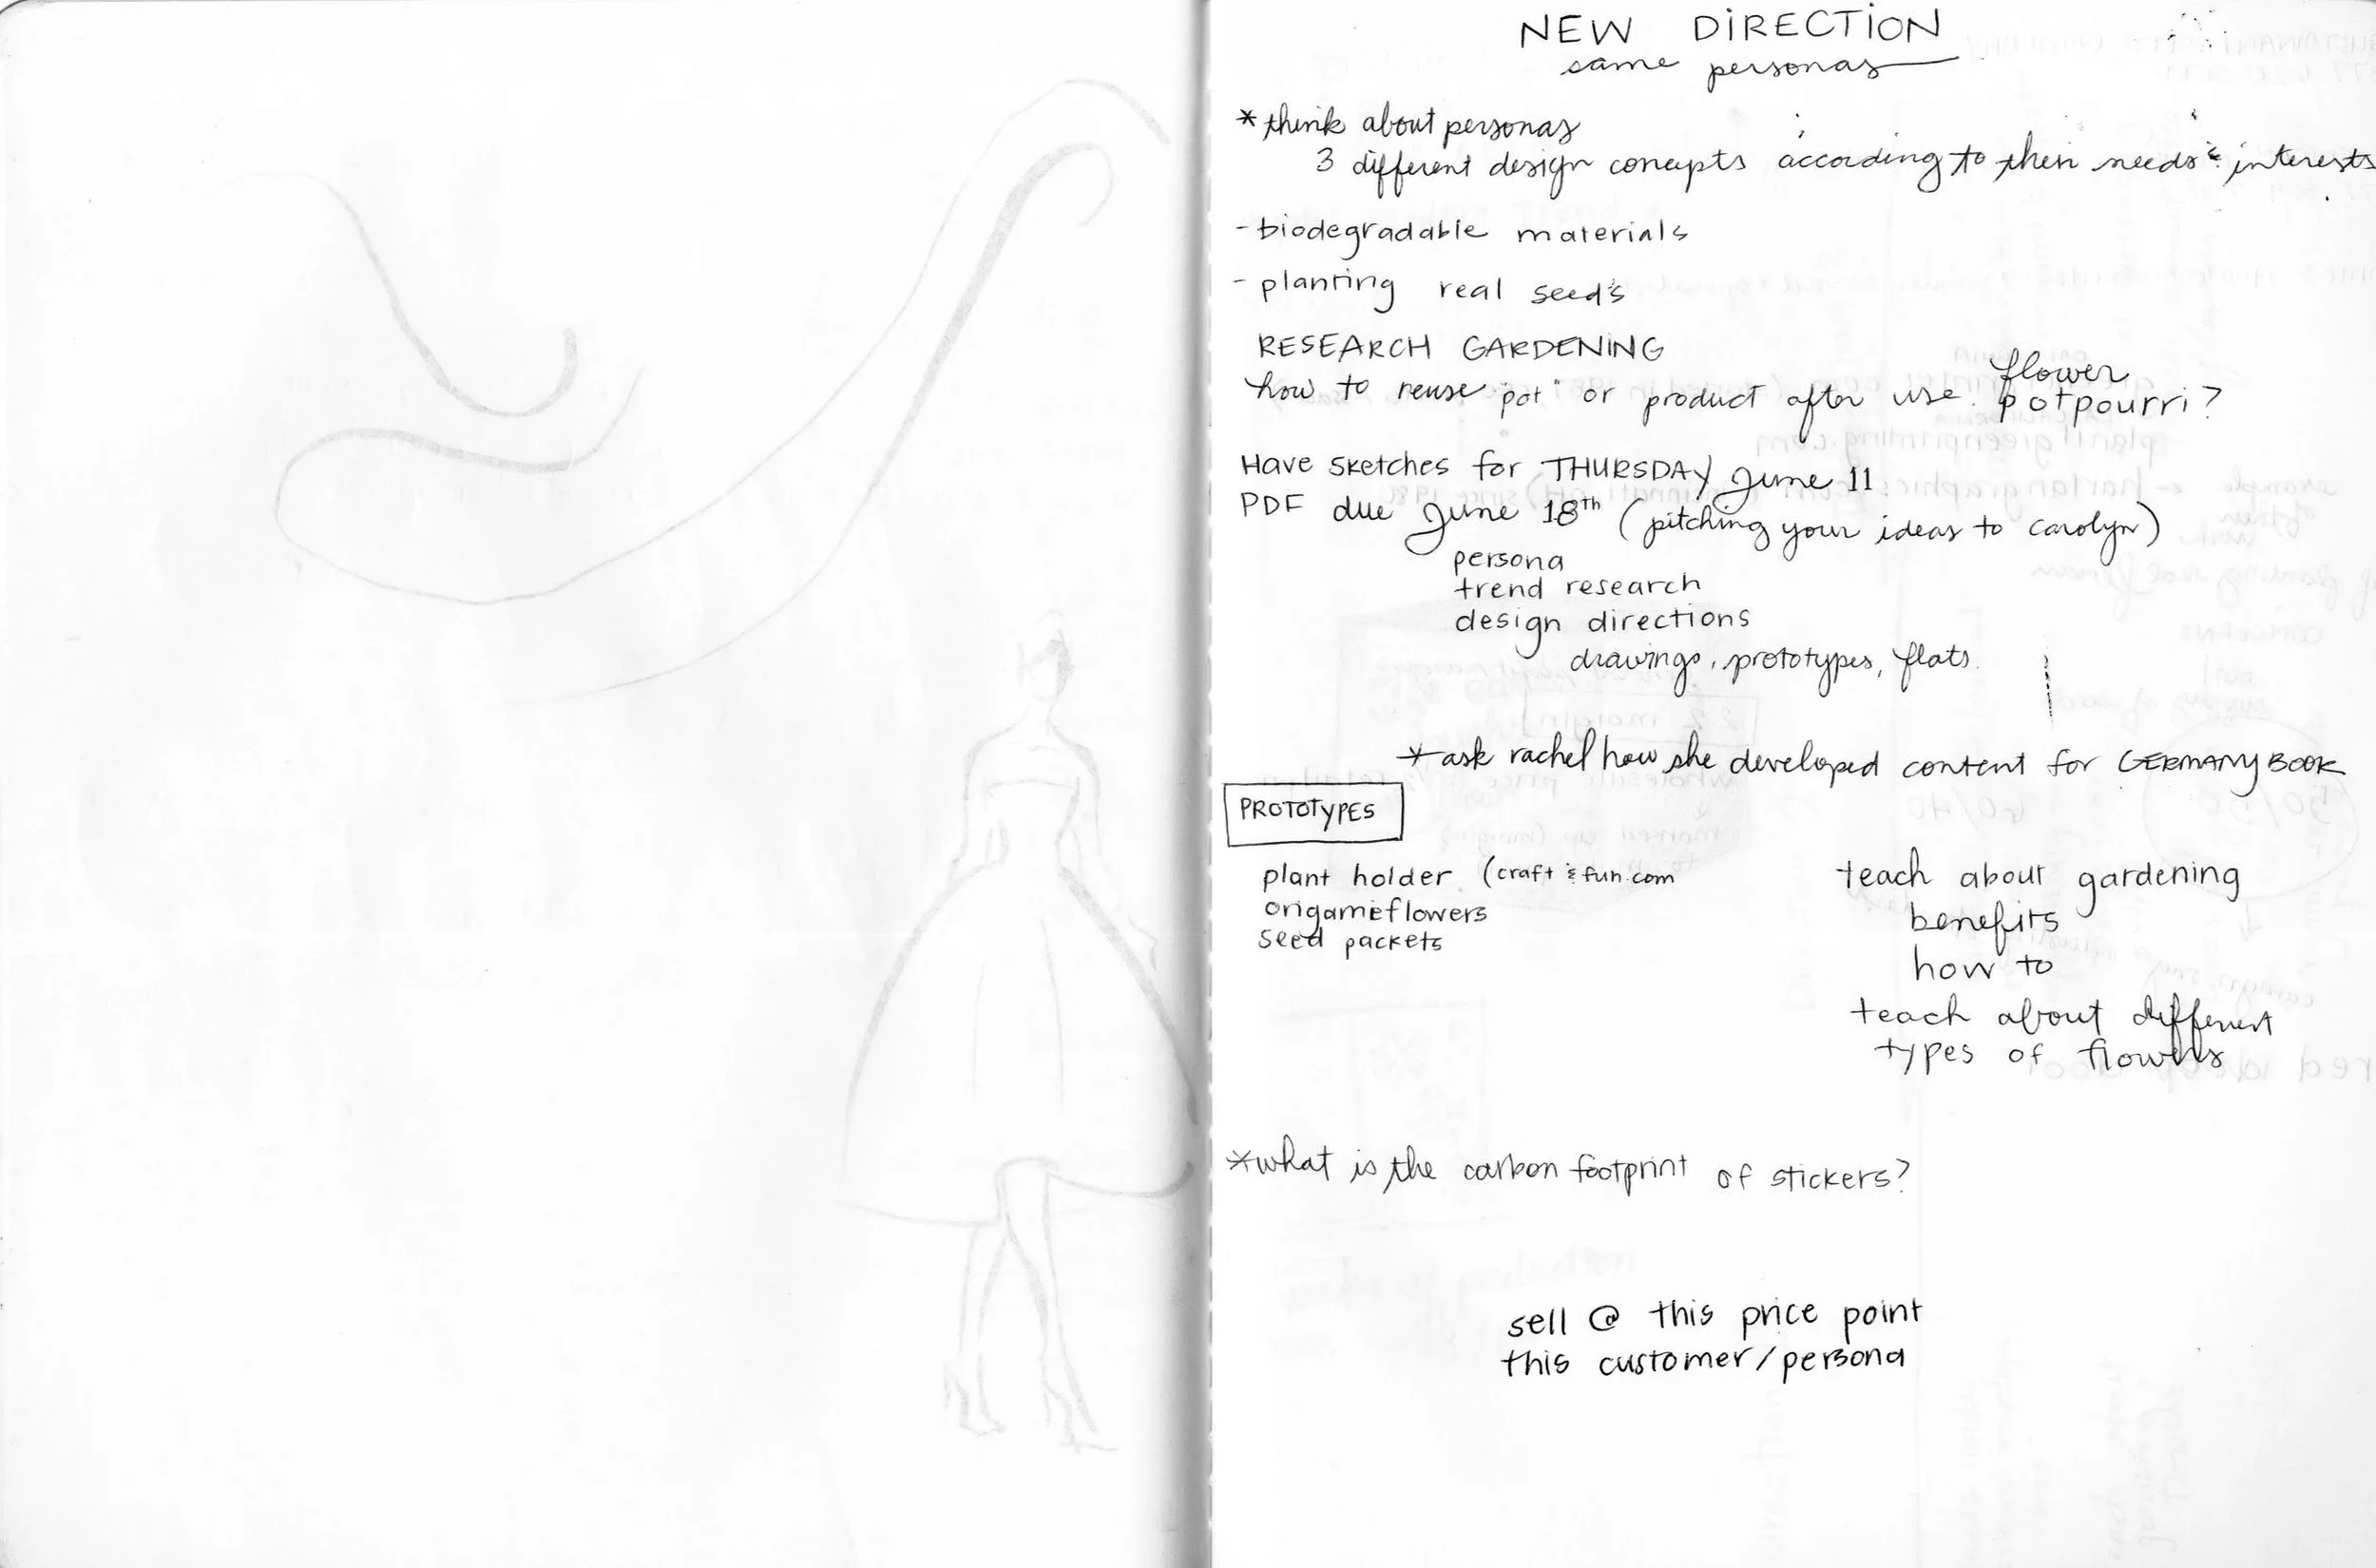 NEW DIRECTION
same personas
*think about personas
3 different design concepts according to their needs & interests
- biodegradable materials
- planting real seeds
RESEARCH GARDENING
how to reuse "pot" or product after use. flower potpourri?
Have sketches for THURSDAY June 11
PDF due June 18th (pitching your ideas to carolyn)
persona
trend research
design directions
drawings, prototypes, flats.
*ask rachel how she developed content for GERMANY BOOK
PROTOTYPES
plant holder (craft & fun.com
origameflowers
seed packets
teach about gardening
benefits
how to
teach about different
types of flowers
*what is the carbon footprint of stickers?
sell @ this price point
this customer/persona